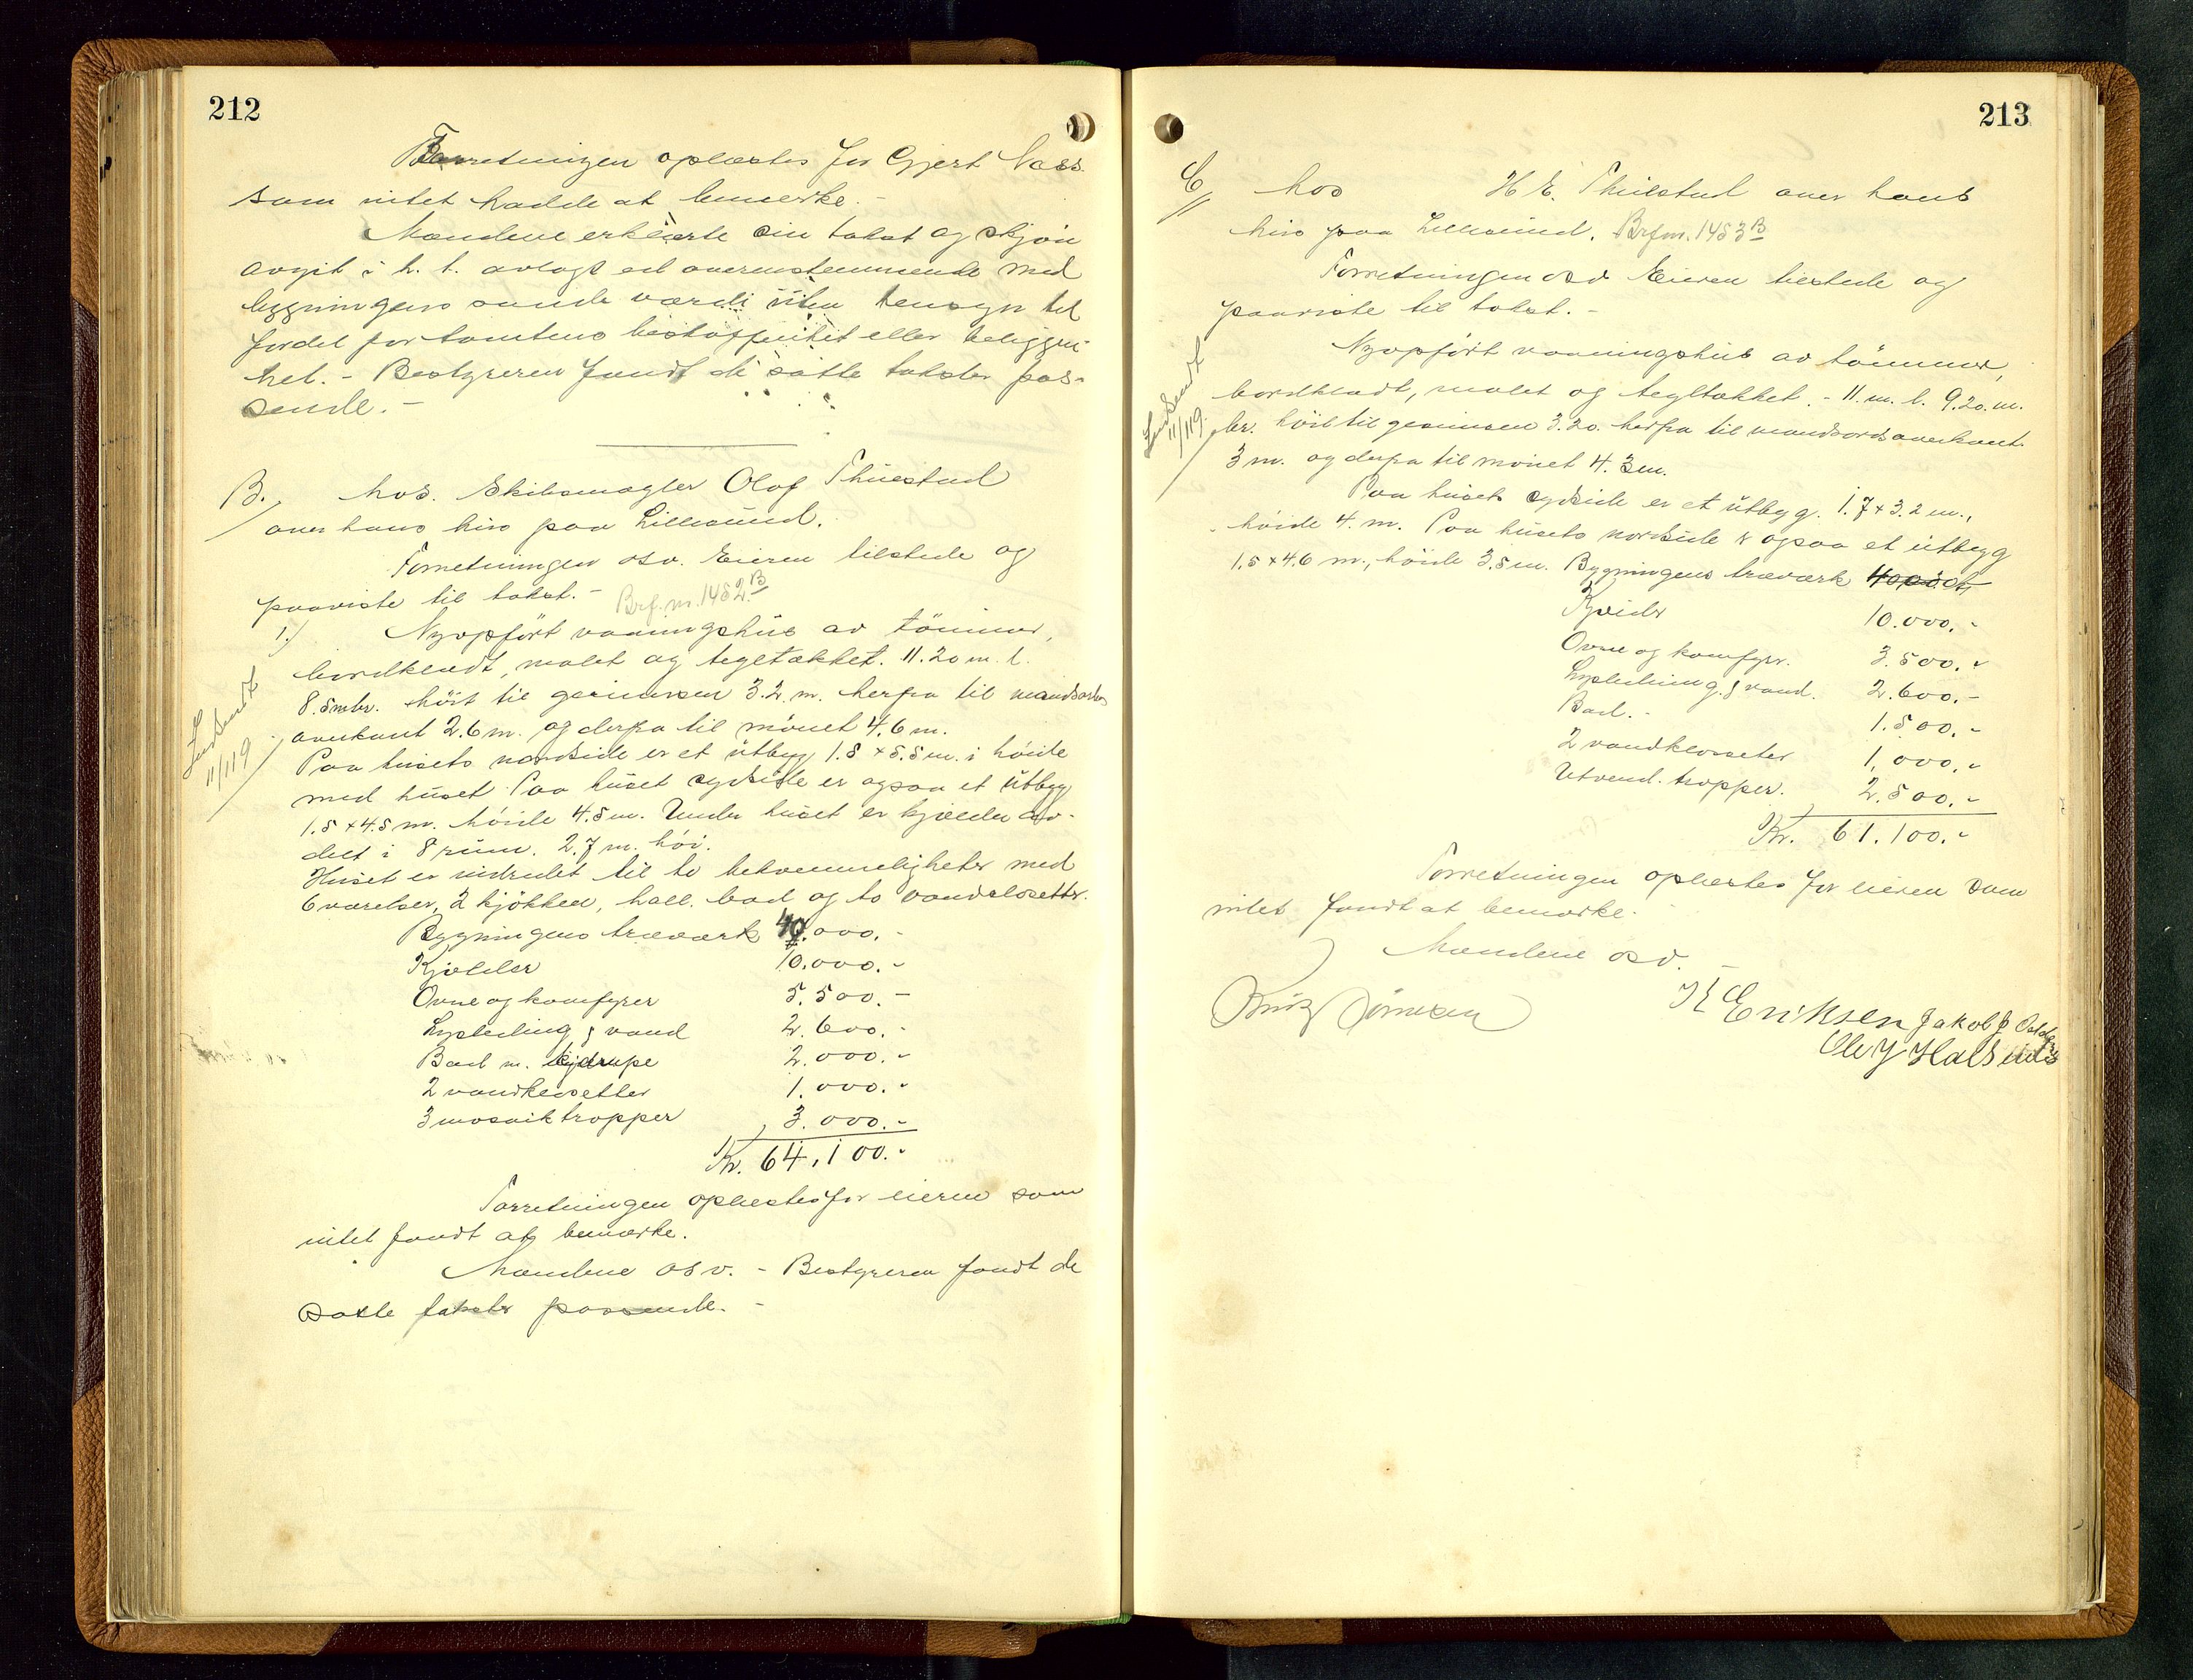 212
Forretningen oplæstes for Gjert Næss
som intet hadde at bemerke. -
Mændene erklærte sin takst og skjön
avgit i h. t. avlagt ed overensstemmende med
bygningens sande værdi uten hensyn til
fordel for tomtens beskaffenhet eller beliggen-
het. - Bestyreren fandt de satte takster pas-
sende. -
B. hos. Skibsmægler Olaf Thuestad
over hans hus paa Lillesund.
Forretningen osv. Eieren tilstede og
paaviste til takst. - Brf. nr. 1452 B
1.) Nyopfört vaaningshus av tömmer,
bordklædt, malet og tegltækket. 11.20 m. l.
8.5 m br. höit til gesimsen 3.2 m. herfra til mandsards
overkant 2.6 m. og derfra til mönet 4.6 m.
Indsendt 11/119
Paa husets nordside er et utbyg 1.5 x 5.5 m. i höide
med huset. Paa huset sydside er ogsaa et utbyg
1.5 x 4.5 m. höide 4.5 m. Under huset er kjelder av-
delt i 8 rum. 2.7 m. höi.
Huset er indredet til to bekvemmeligheter med
6 værelser, 2 kjökken, hall. bad og to vandclosetter.
Bygningens træværk 40.000. -
Kjelder 10.000. -
Ovne og komfyrer 5.500. -
Lysledning & vand 2.600. -
Bad m. 2.000. -
2 vandklosetter 1.000. -
3 mosaik trapper 3.000. -
Kr. 64,100. -
Forretningen oplæstes for eieren som
intet fandt at bemerke.
Mændene osv. - Bestyreren fandt de
satte takster passende. -
213
C hos H E. Thuestad over hans
hus paa Lillesund. Brf nr. 1453 B
Forretningen osv Eieren tilstede og
paaviste til takst. -
Nyopfört vaaningshus av tömmer,
bordklædt, malet og tegltækket. - 11. m. l. 9.20. m.
Indsendt 11/119.
br. höit til gesimsen 3.20. herfra til mandsards overkant
3 m. og derfra til mönet 4.3 m.
Paa husets sydside er et utbyg. 1.7 x 3.2 m.,
höide 4. m. Paa husets nordside er ogsaa et utbyg
1.5 x 4.6 m., höide 3.5 m. Bygningens træværk
Kjelder 10.000. -
Ovne og komfyrer. 3.500. -
Lysledning & vand. 2.600. -
Bad. - 1.500. -
2 vandklosseter 1,000. -
Utvend. trapper. 2.500. -
Kr. 61.100. -
Forretningen oplæstes for eieren som
intet fandt at bemerke.
Mændene osv. -
K Eriksen Jakob
Ole J